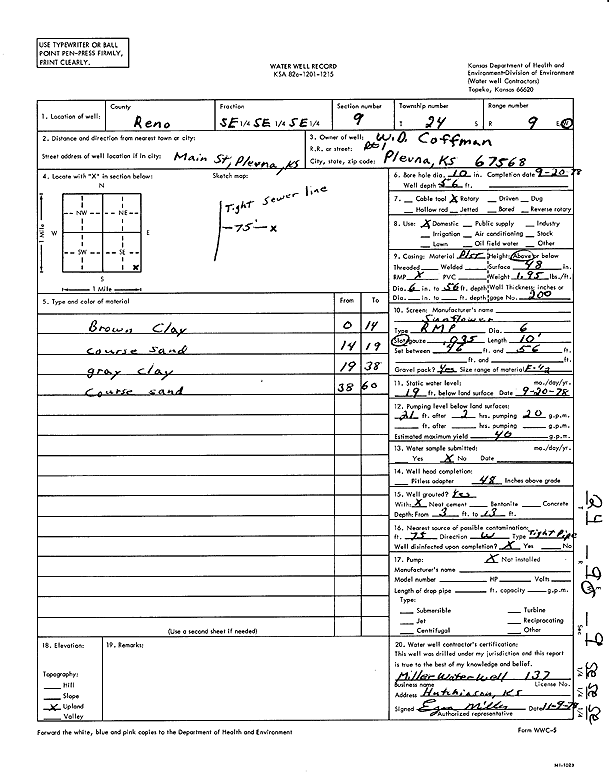 USE TYPEWRITER OR BALL
POINT PEN-PRESS FIRMLY,
PRINT CLEARLY.
WATER WELL RECORD
KSA 82a-1201-1215
Kansas Department of Health and
Environment-Division of Environment
(Water well Contractors)
Topeka, Kansas 66620
1. Location of well: County Reno Fraction SE 1/4 SE 1/4 SE 1/4 Section number 9 Township number T 24 S Range number R 9 E/W
2. Distance and direction from nearest town or city:
Street address of well location if in city: Main St, Plevna, KS
3. Owner of well: W.D. Coffman
R.R. or street: Rt 1
City, state, zip code: Plevna, KS 67568
4. Locate with "X" in section below:
Sketch map:
N
NW NE
W E
SW SE
X
S
1 Mile
1 Mile
Tight sewer line
-75'- x
5. Type and color of material From To
Brown Clay 0 14
course sand 14 19
gray clay 19 38
Course sand 38 60
(Use a second sheet if needed)
6. Bore hole dia. 10 in. Completion date 9-20-78
Well depth 56 ft.
7. Cable tool X Rotary Driven Dug
Hollow rod Jetted Bored Reverse rotary
8. Use: X Domestic Public supply Industry
Irrigation Air conditioning Stock
Lawn Oil field water Other
9. Casing: Material Plst Height: Above or below
Threaded Welded Surface 48 in.
RMP X PVC Weight 1.95 lbs./ft.
Dia. 6 in. to 56 ft. depth Wall Thickness: inches or
Dia. in. to ft. depth gage No. 200
10. Screen: Manufacturer's name
Sunflower
Type RMP Dia. 6
Slot/gauze .035 Length 10'
Set between 46 ft. and 56 ft.
ft. and ft.
Gravel pack? Yes Size range of material
11. Static water level: mo./day/yr.
19 ft. below land surface Date 9-20-78
12. Pumping level below land surfaces:
21 ft. after 2 hrs. pumping 20 g.p.m.
ft. after hrs. pumping g.p.m.
Estimated maximum yield 40 g.p.m.
13. Water sample submitted: mo./day/yr.
Yes X No Date
14. Well head completion:
Pitless adapter 48 Inches above grade
15. Well grouted? Yes
With: X Neat cement Bentonite Concrete
Depth: From 3 ft. to 13 ft.
16. Nearest source of possible contamination:
ft. 75 Direction W Type Tight Pipe
Well disinfected upon completion? X Yes No
17. Pump: X Not installed
Manufacturer's name
Model number HP Volts
Length of drop pipe ft. capacity g.p.m.
Type:
Submersible Turbine
Jet Reciprocating
Centrifugal Other
18. Elevation:
Topography:
Hill
Slope
X Upland
Valley
19. Remarks:
20. Water well contractor's certification:
This well was drilled under my jurisdiction and this report
is true to the best of my knowledge and belief.
Miller Water Well 137
Business name License No.
Address Hutchinson, KS
Signed Miller Date 11-9-78
Authorized representative
Forward the white, blue and pink copies to the Department of Health and Environment
Form WWC-5
T 24 R 9 E W Sec 9
SE 1/4 SE 1/4 SE 1/4